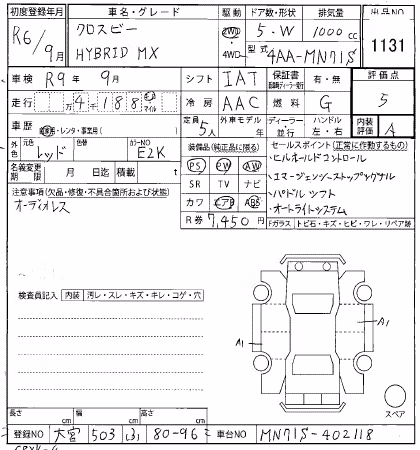 初度登録年月 車名・グレード 駆動 ドア数・形状 排気量 出品NO
R6/9月 クロスビー HYBRID MX 2WD 4WD 5・W 1000cc 1131
型式 4AA-MN71S
車検 R9年 9月 シフト IAT 保証書 有・無 評価点
走行 万4千188 キロ マイル 冷房 AAC 燃料 G 5
車歴 自家用・レンタ・事業用( ) 定員 5人 外車モデル 年 ディーラー 並行 ハンドル 左・右 内装評価 A
外色 元色 レッド 色替 カラーNO E2K 装備品(純正品に限る) セールスポイント(正常に作動するもの)
名義変更期限 月 日迄 積載 t PS PW AW ・ヒルホールドコントロール
注意事項(欠品・修復・不具合箇所および状態) SR TV ナビ ・エマージェンシーストップシグナル
オーディオレス カワ エアB ABS ・パドルシフト
R券 7,450円 ・オートライトシステム
Fガラス トビ石・キズ・ヒビ・ワレ・リペア跡
検査員記入 内装 汚レ・スレ・キズ・キレ・コゲ・穴
A1 A1
スペア
長さ cm 幅 cm 高さ cm
登録NO 大宮 503 ふ 80-96 車台NO MN71S-402118